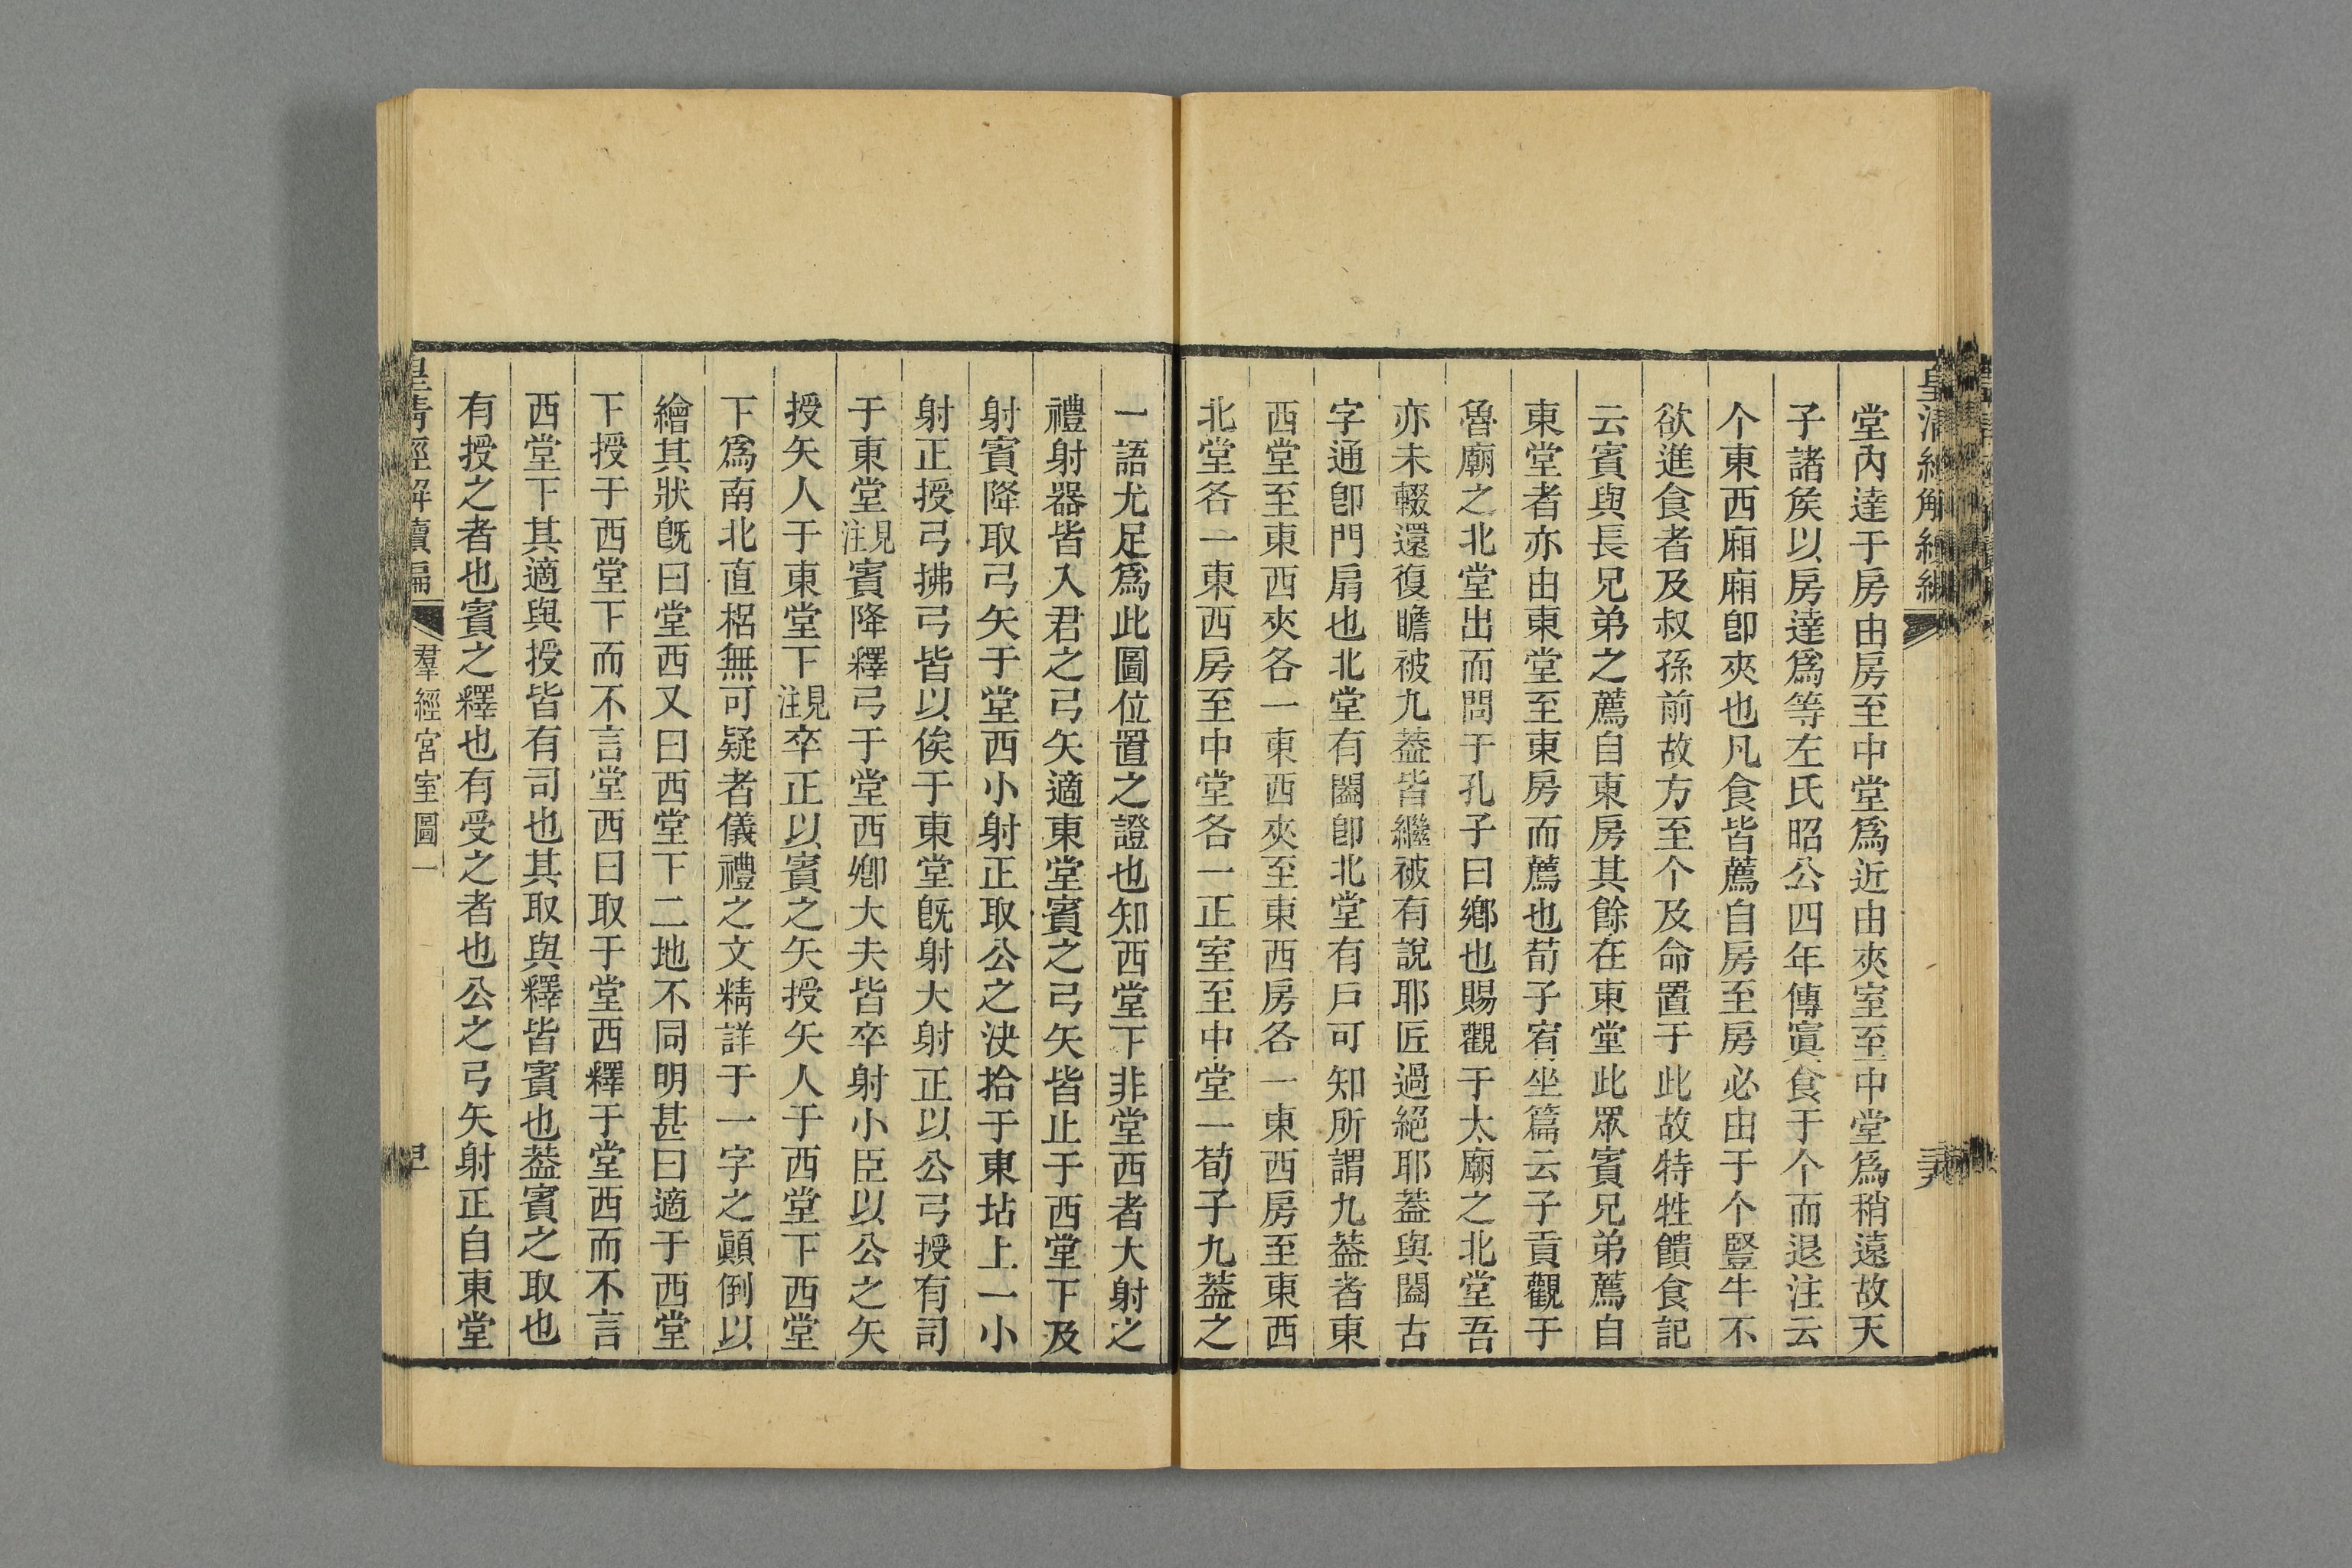 堂內達于房由房至中堂爲近由夾室至中堂爲稍遠故天
子諸矦以房達爲等左氏昭公四年傳寘食于个而退注云
个東西廂廂卽夾也凡食皆薦自房至房必由于个豎牛不
欲進食者及叔孫前故方至个及命置于此故特牲饋食記
云賓與長兄弟之薦自東房其餘在東堂此眾賓兄弟薦自
東堂者亦由東堂至東房而薦也荀子宥坐篇云子貢觀于
魯廟之北堂出而問于孔子曰鄕也賜觀于太廟之北堂吾
亦未輟還復瞻被九蓋皆繼被有說耶匠過絕耶蓋與闔古
字通卽門扇也北堂有闔卽北堂有戶可知所謂九蓋者東
西堂至東西夾各一東西夾至東西房各一東西房至東西
北堂各一東西房至中堂各一正室至中堂一荀子九蓋之
一語尤足爲此圖位置之證也知西堂下非堂西者大射之
禮射器皆入君之弓矢適東堂賓之弓矢皆止于西堂下及
射賓降取弓矢于堂西小射正取公之決拾于東坫上一小
射正授弓拂弓皆以俟于東堂旣射大射正以公弓授有司
于東堂見注賓降釋弓于堂西卿大夫皆卒射小臣以公之矢
授矢人于東堂下見注卒正以賓之矢授矢人于西堂下西堂
下爲南北直梠無可疑者儀禮之文精詳于一字之顚倒以
繪其狀旣曰堂西又曰西堂下二地不同明甚曰適于西堂
下授于西堂下而不言堂西曰取于堂西釋于堂西而不言
西堂下其適與授皆有司也其取與釋皆賓也蓋賓之取也
有授之者也賓之釋也有受之者也公之弓矢射正自東堂
皇淸經解續編
羣經宮室圖一